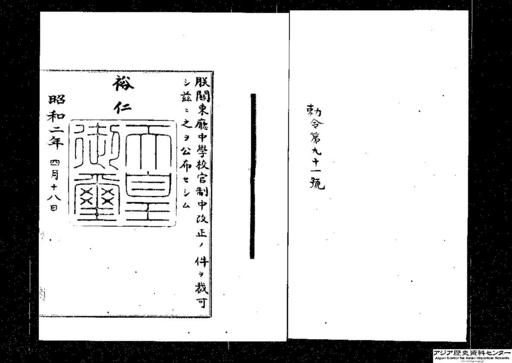 勅令第九十一號
朕關東廳中學校官制中改正ノ件ヲ裁可
シ茲ニ之ヲ公布セシム
裕仁
天皇
御璽
昭和二年四月十八日
アジア歴史資料センター
Japan Center for Asian Historical Records